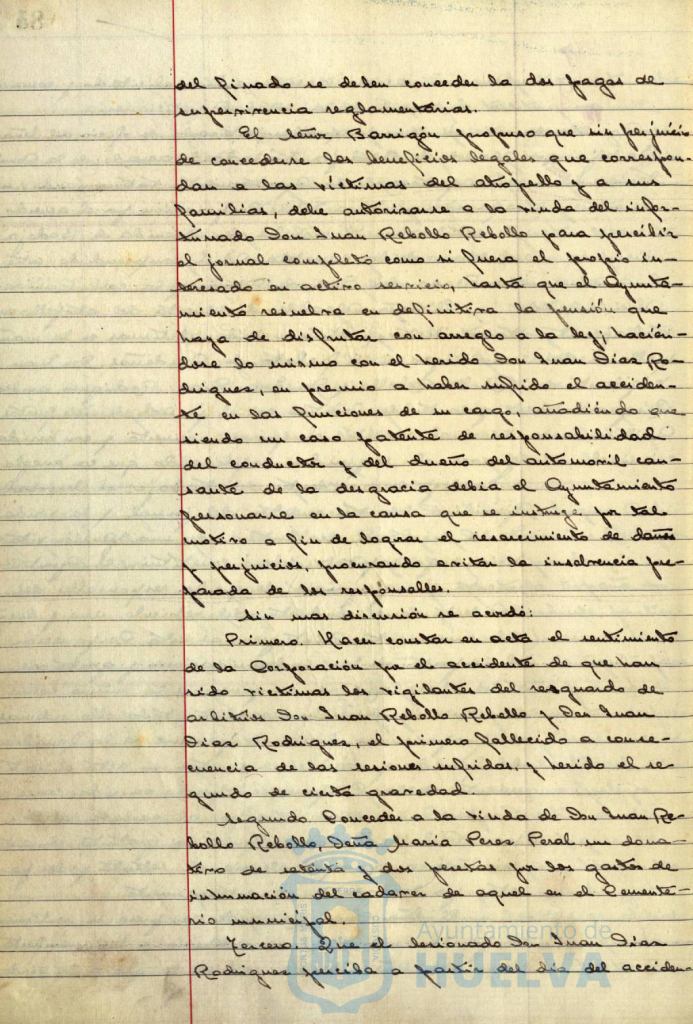 del finado se deben conceder la dos pagas de
supervivencia reglamentarias.
El Señor Barrigón propuso que sin perjuicio
de concederse los beneficios legales que correspon-
dan a las víctimas del atropello y a sus
familias, debe autorizarse a la viuda del infor-
tunado Don Juan Rebollo Rebollo para percibir
el jornal completo como si fuera el propio in-
teresado en activo servicio, hasta que el Ayunta-
miento resuelva en definitiva la pensión que
haya de disfrutar con arreglo a la ley; hacién-
dose lo mismo con el herido Don Juan Dias Ro-
driguez, en premio a haber sufrido el acciden-
te en las funciones de su cargo, añadiendo que
siendo un caso patente de responsabilidad
del conductor y del dueño del automovil cau-
sante de la desgracia debia el Ayuntamiento
personarse en la causa que se instruye por tal
motivo a fin de lograr el resarcimiento de daños
y perjuicios, procurando evitar la insolvencia pre-
parada de los responsables.
Sin mas discusión se acordó:
Primero. Hacer constar en acta el sentimiento
de la Corporación por el accidente de que han
sido victimas los vigilantes del resguardo de
arbitrios Don Juan Rebollo Rebollo y Don Juan
Dias Rodriguez, el primero fallecido a conse-
cuencia de las lesiones sufridas, y herido el se-
gundo de cierta gravedad.
Segundo. Conceder a la viuda de Don Juan Re-
bollo Rebollo, Doña Maria Perez Peral un dona-
tivo de setenta y dos pesetas por los gastos de
inhumación del cadaver de aquel en el Cemente-
rio municipal.
Tercero. Que el lesionado Don Juan Dias
Rodriguez perciba a partir del dia del acciden-
Ayuntamiento de
HUELVA